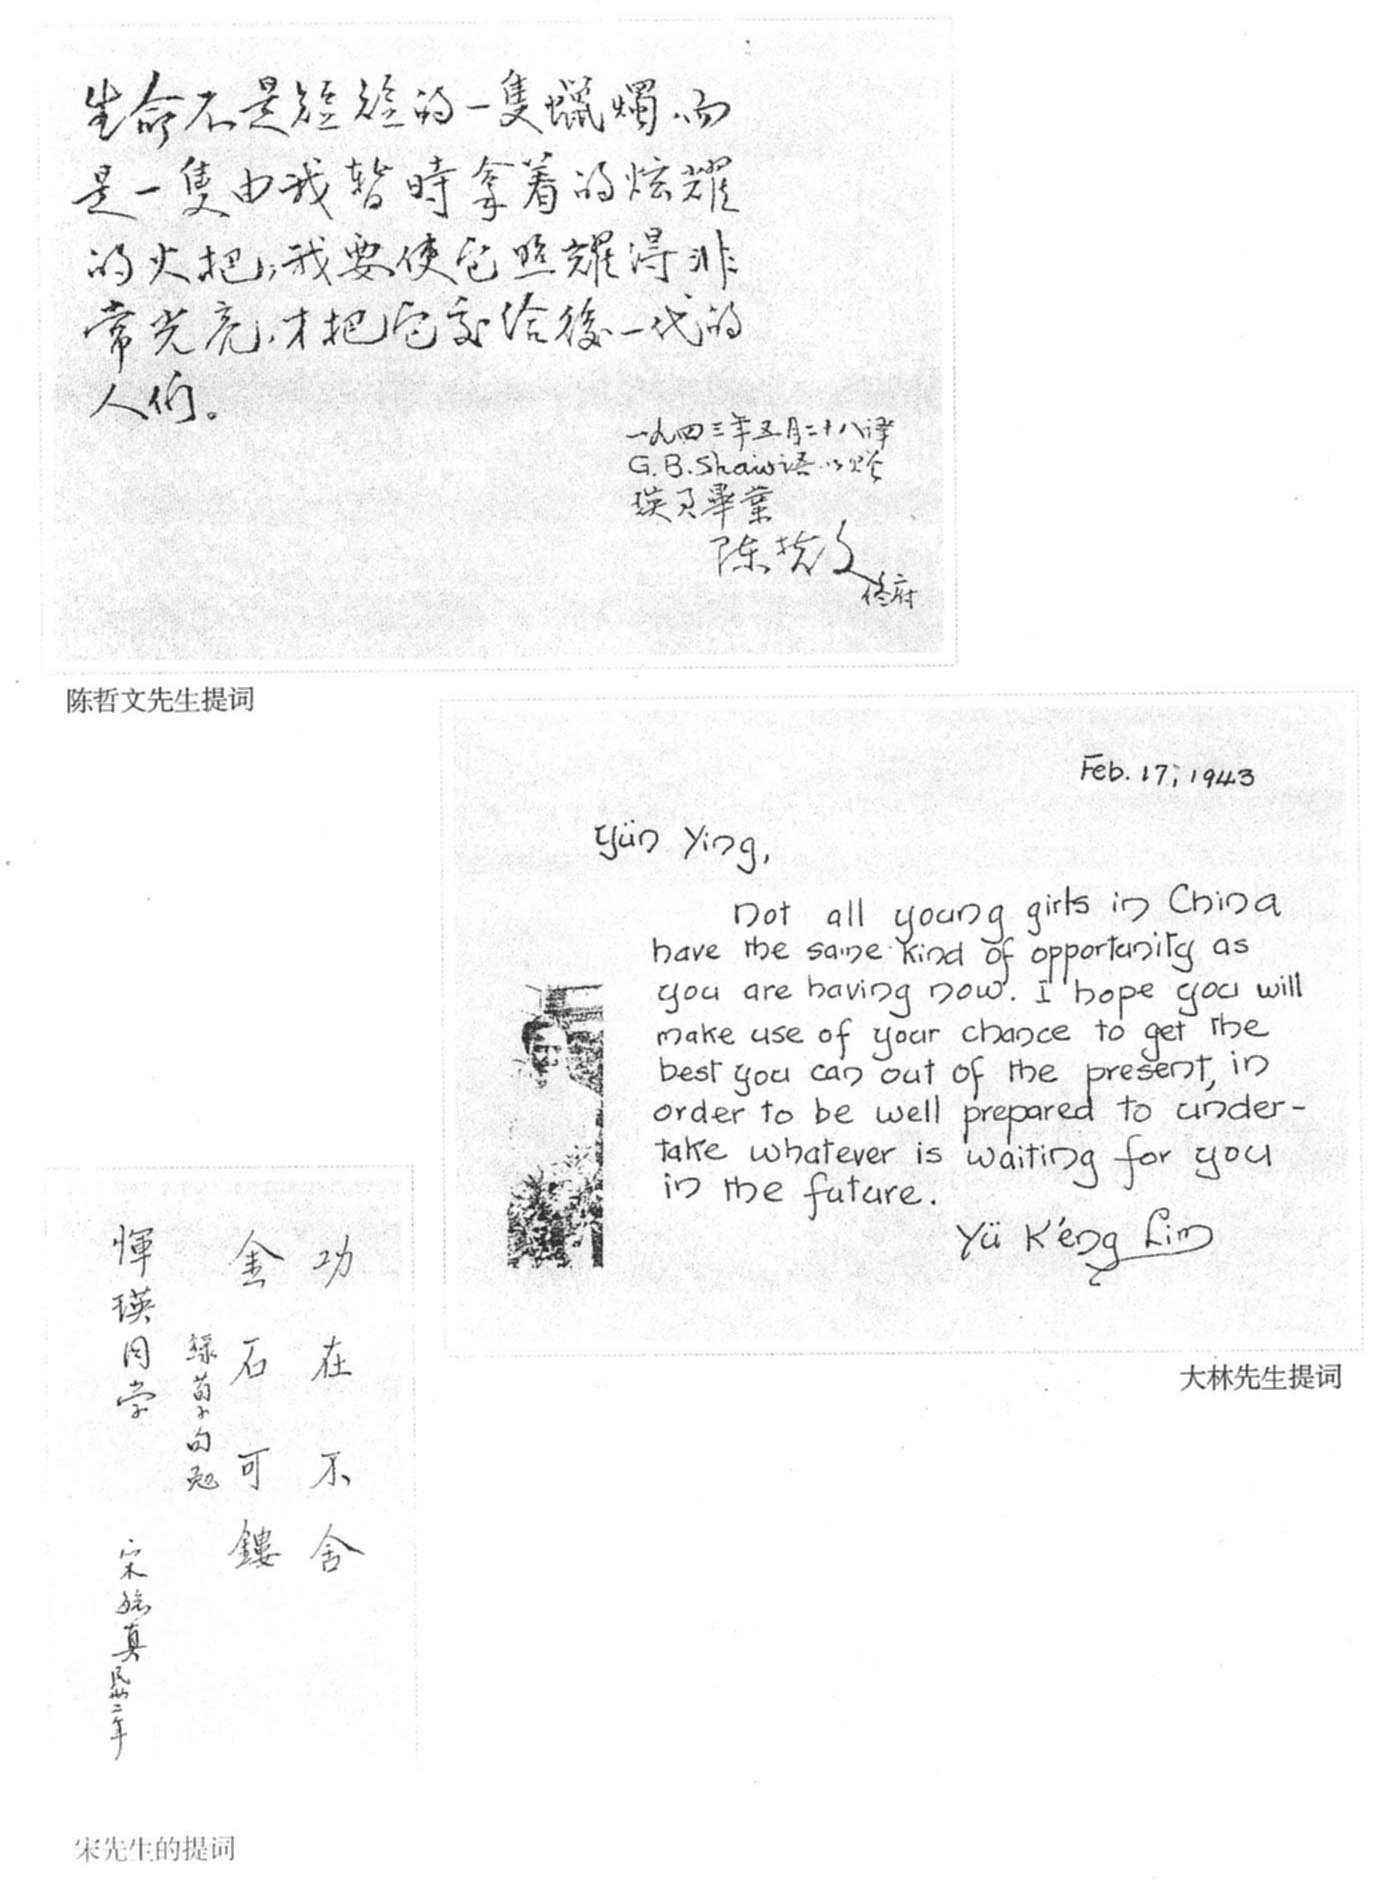 生命不是短短的一隻蠟燭,而
是一隻由我暫時拿着的炫耀
的火把,我要使它照耀得非
常光亮,才把它交给後一代的
人们。
一九四三年五月二十八译
G.B.Shaw语以贈
瑛 畢業
陈哲文
陈哲文先生提词
Feb. 17, 1943
Yün Ying,
not all young girls in China
have the same kind of opportunity as
you are having now. I hope you will
make use of your chance to get the
best you can out of the present, in
order to be well prepared to under-
take whatever is waiting for you
in the future.
Yü K'éng Lin
大林先生提词
功在不舍
金石可鏤
録荀子句勉
惲瑛同学
宋 真 民卅二年
宋先生的提词